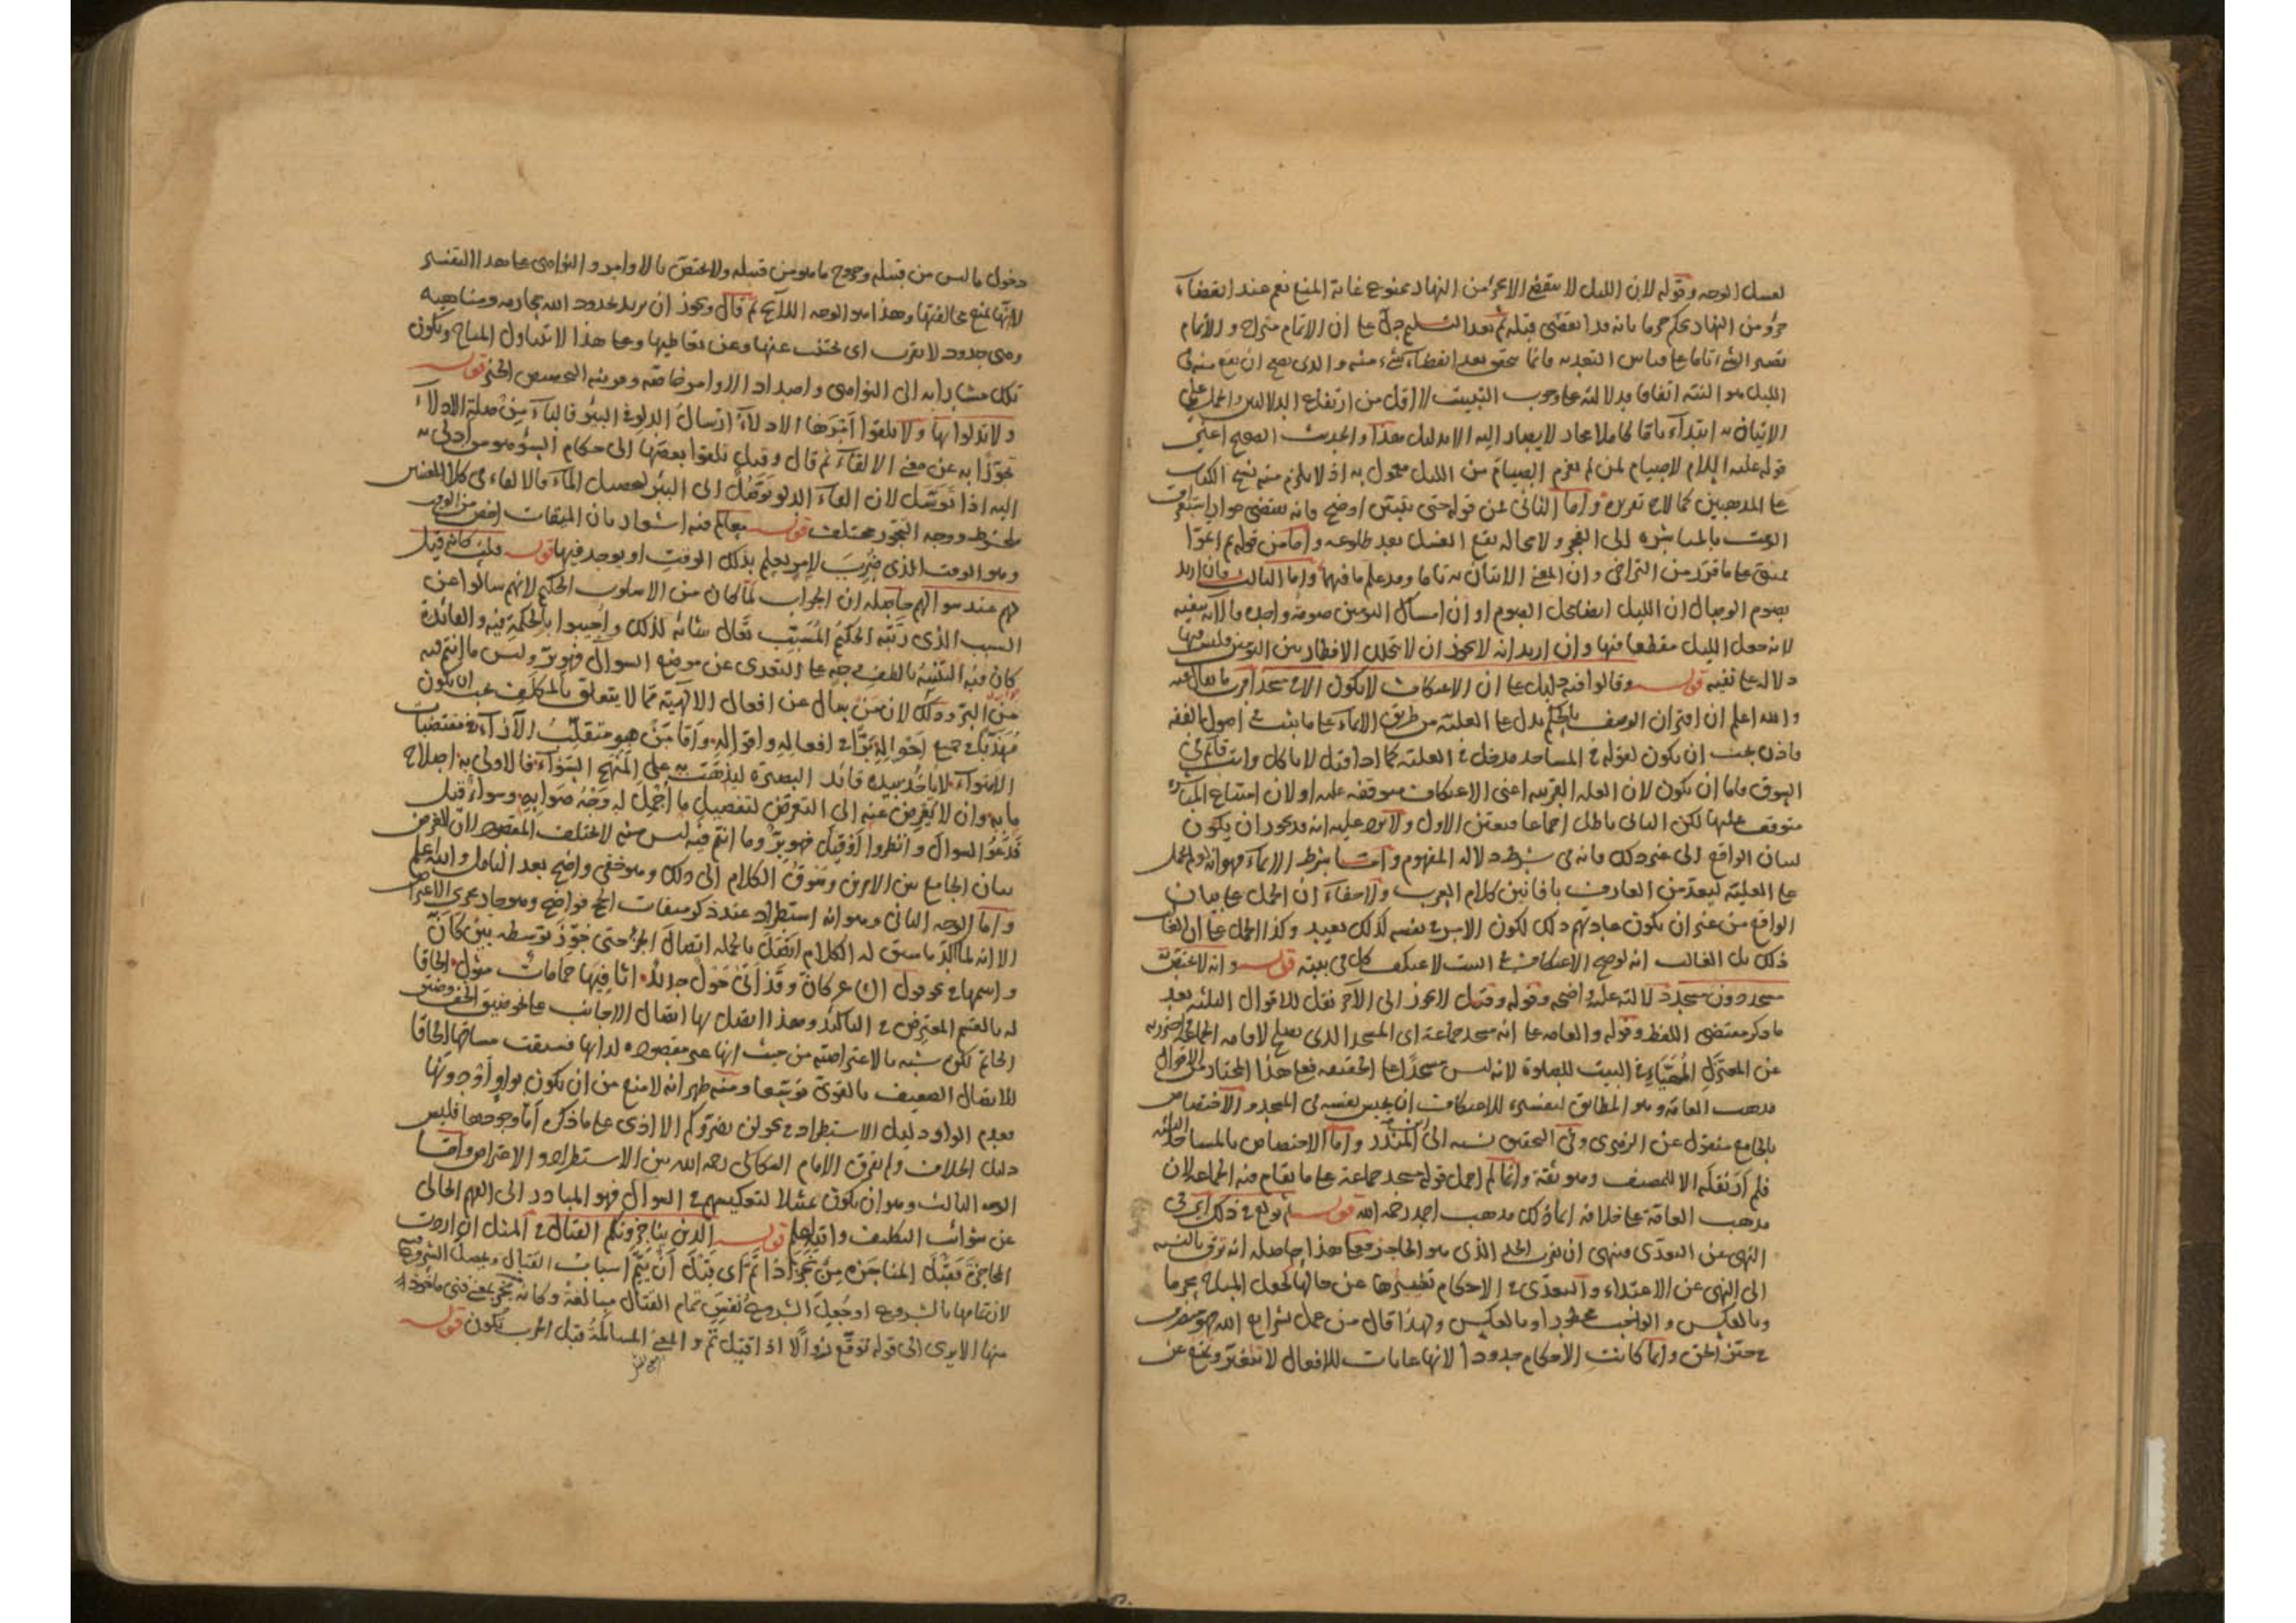 لغسل الوجه وقوله لان الليل لا ينقضي الا بجزء من النهار ممنوع غاية المنع نعم عند انقضاء
جزء من النهار يحكم جزما بانه قد انقضى قبله ثم بعد التسليم دل على ان الاتمام متراخ والاتمام
تصير الشيء تاما على قياس التعدية فانما يتحقق بعد انقطاع شيء منه والذي يصح ان يقع منه في
الليل هو النية اتفاقا فدلالته على وجوب التبييت لا اقل من ارتفاع الدلالتين والحمل على
الاتيان به ابتداء تاما كاملا مجاز لا يصار اليه الا بدليل هذا والحديث الصحيح اعني
قوله عليه السلام لا صيام لمن لم يعزم الصيام من الليل معمول به اذ لا يلزم منه نسخ الكتاب
على المذهبين كما لاح تقريره واما الثاني فمن قوله حتى يتبين اوضح فانه يقتضي جواز استغراق
الوقت بالمباشرة الى الفجر ولا محالة يقع الغسل بعد طلوعه واما من قوله ثم اتموا
فمبني على ما قرر من التراخي وان المعنى الاتيان به تاما وقد علم ما فيها واما الثالث فان اريد
بصوم الوصال ان الليل ايضا محل الصوم او ان امساك اليومين صومة واحدة فالآية تنفيه
لانه جعل الليل مقطعا فيها وان اريد انه لا يجوز ان لا يتخلل الافطار بين اليومين فليس فيها
دلالة على نفيه قوله وقالوا فيه دليل على ان الاعتكاف لا يكون الا في مسجد اقرب ما يقال فيه
والله اعلم ان اقتران الوصف بالحكم يدل على العلية من طريق الايماء على ما يثبت في اصول الفقه
فاذن يجب ان يكون لقوله في المساجد مدخل في العلية كما اذا قيل لا تأكل وانت قائم في
السوق فاما ان يكون لان العلة القريبة اعني الاعتكاف متوقفة عليه او لان امتناع المباشرة
متوقف عليها لكن الثاني باطل اجماعا فتعين الاول ولا يرد عليه انه قد يجوز ان يكون
لبيان الواقع الى غير ذلك فانه في شرط دلالة المفهوم واما شرط الايماء فهو انه لو لم يحمل
على العلية لبعد من العارف بافانين كلام العرب ولا خفاء ان الحمل على بيان
الواقع من غير ان يكون عبادتهم ذلك لكون الامر في نفسه كذلك بعيد وكذا الحمل على ان الغالب
ذلك بل الغالب انه لو صح الاعتكاف في البيت لاعتكف كل في بيته قوله وانه لا يختص به
مسجد دون مسجد دلالته عليه واضحة وقوله وقيل لا يجوز الى الآخر نقل للاقوال الثلثة بعد
ما ذكر مقتضى اللفظ وقوله والعامة على انه مسجد جماعة اي المسجد الذي يصلح لاقامة الجماعة احترز به
عن المعتزل المهيأ في البيت للصلوة لانه ليس مسجدا على الحقيقة فعلى هذا المختار من الاقوال
مذهب العامة وهو المطابق لتفسيره للاعتكاف ان يحبس نفسه في المسجد والاختصاص
بالجامع منقول عن الزهري وفي التحقيق نسبه الى ابن المنذر واما الاختصاص بالمساجد الثلثة
فلم ار نقله الا للمصنف وهو ثقة وانما لم احمل قوله مسجد جماعة على ما يقام فيه الجماعة لان
مذهب العامة على خلافه انما ذلك مذهب احمد رحمه الله قوله ثم بولغ في ذلك اي في
النهي عن التعدي فنهي ان يقرب الحد الذي هو الحاجز فعلى هذا حاصله انه ترق بالنسبة
الى النهي عن الاعتداء والتعدي في الاحكام تغييرها عن حالها كجعل المباح محرما
وبالعكس والواجب محظورا وبالعكس ولهذا قال من عمل بشرايع الله فهو متصرف
في حيز الحق وانما كانت الاحكام حدودا لانها غايات للافعال لا تتغير وتمنع عن
دخول ما ليس من قبيله وخروج ما هو من قبيله ولا يختص بالاوامر والنواهي على هذا التفسير
لانها تمنع مخالفتها وهذا هو الوجه اللائح ثم قال ويجوز ان يريد بحدود الله محارمه ومناهيه
وهي حدود لا تقرب اي يجتنب عنها وعن تعاطيها وعلى هذا لا يتناول المباح ويكون
تلك مشارا به الى النواهي واضداد الاوامر خاصة وقرينة التخصيص الخبر قوله
ولا تدلوا بها ولا تلقوا امرها الادلاء ارسال الدلو في البئر فالباء من صلة الادلاء
تجوزا به عن معنى الالقاء ثم قال وقيل تلقوا بعضها الى حكام السوء هو من ادلى به
اليه اذا توسل لان القاء الدلو توصل الى البئر لتحصيل الماء فالالقاء في كلا التفسيرين
ملحوظ ووجه التجوز مختلف قوله معالم فيه اشعار بان الميقات اخص من الوقت
وهو الوقت الذي ضرب لامر يعلم بذلك الوقت او يوجد فيها قوله فان قلت كانه قيل
لهم عند سوالهم حاصله ان الجواب لما كان من الاسلوب الحكيم لانهم سالوا عن
السبب الذي رتبه الحكيم المسبب تعالى شانه لذلك واجيبوا بالحكمة فيه والفائدة
كان فيه التنبيه بالطف وجه على التعدي عن موضع السوال فهو بر وليس ما انتم فيه
من البر وذلك لان من يسال عن افعال الالهية مما لا يتعلق بالمكلف يجب ان يكون
مهذبا في جميع احواله برا في افعاله واقواله واما من هو متقلب الآراء في مقتضيات
الاهواء لا ياخذ بيده قائد البصيرة ليذهب به على المنهج السواء فالاولى به اصلاح
ما به وان لا يعرض عنه الى التعرض لتفصيل ما اجمل له وجه صوابه وسواء قيل
فدعوا السوال وانظروا او قيل فهو بر وما انتم فيه ليس منه لا يختلف المقصود لان الغرض
بيان الجامع بين الامرين وسوق الكلام الى ذلك وهو خفي واضح بعد التامل والله اعلم
واما الوجه الثاني وهو انه استطراد عند ذكر ميقات الحج فواضح وهو جار مجرى الاعتراض
الا انه لما اكد ما سيق له الكلام اتصل بالجملة اتصال الجزء حتى جوز توسطه بين كان
واسمها في نحو قول كان وقد اتى حول جديد اثافيها حمامات مثول الحاقا
له بالقسم المعترض في التاكيد وهذا اتصل بها اتصال الاجانب على نحو ضيق الخف وضيق
الخاتم لكن شبه بالاعتراضية من حيث انها غير مقصودة لذاتها فسيقت مساقها الحاقا
للاتصال الضعيف بالقوي توسعا ومنه ظهر انه لا منع من ان يكون بواو او دونها
فعدم الواو دليل الاستطراد في نحو لن يضروكم الا اذى على ما ذكره اما وجودها فليس
دليل الخلاف ولم يفرق الامام السكاكي رحمه الله بين الاستطراد والاعتراض واما
الوجه الثالث وهو ان يكون تمثيلا لتعكيسهم في السوال فهو المبادر الى الفهم الخالي
عن شوائب التكليف والله اعلم قوله الذين يناجزونكم القتال في المثل ان اردت
المحاجزة فقبل المناجزة من نجز اذا تم اي قبل ان يتم اسباب القتال ويحصل الشروع فيه
لان تمامها بالشروع او جعل الشروع نفس تمام القتال مبالغة وكانه نجز بمعنى فني ماخوذ
منها الا يرى الى قوله توقع زوالا اذا قيل تم والمعنى المسالمة قبل الحرب تكون قوله